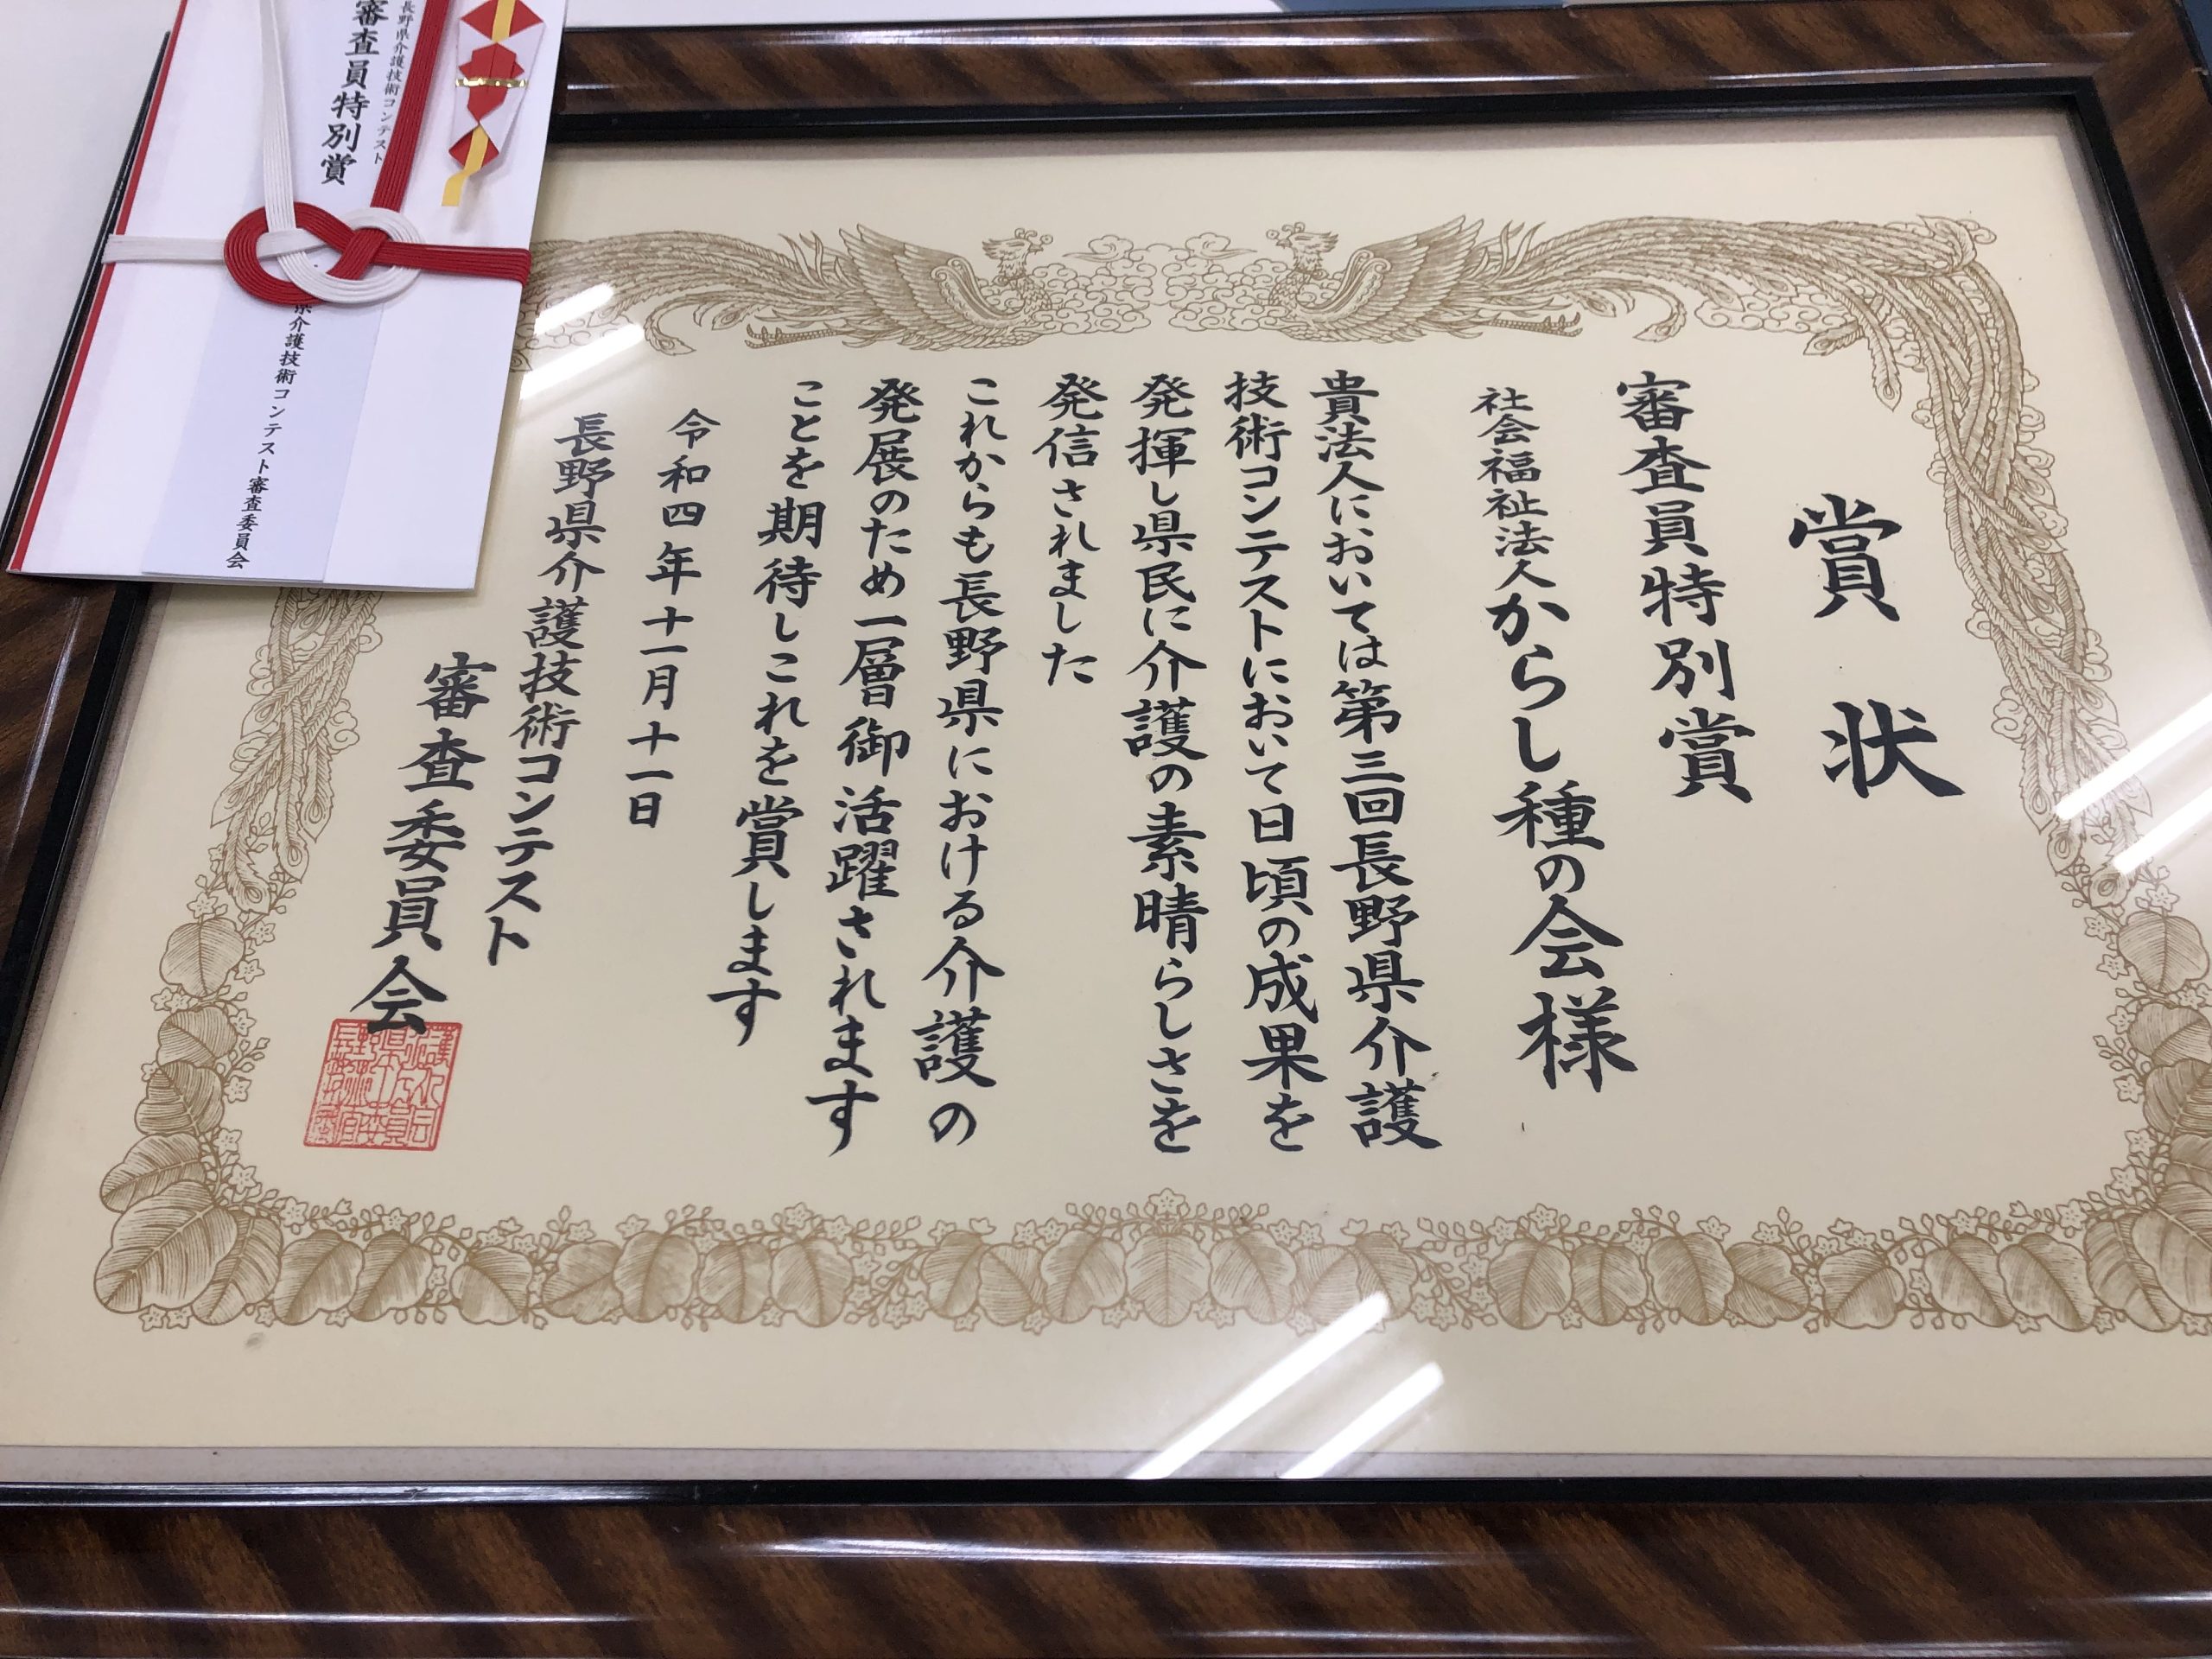 賞状
審査員特別賞
社会福祉法人からし種の会様
貴法人においては第三回長野県介護
技術コンテストにおいて日頃の成果を
発揮し県民に介護の素晴らしさを
発信されました
これからも長野県における介護の
発展のため一層御活躍されます
ことを期待しこれを賞します
令和四年十一月十一日
長野県介護技術コンテスト
審査委員会
長野県介護技術コンテスト
審査員特別賞
県介護技術コンテスト審査委員会